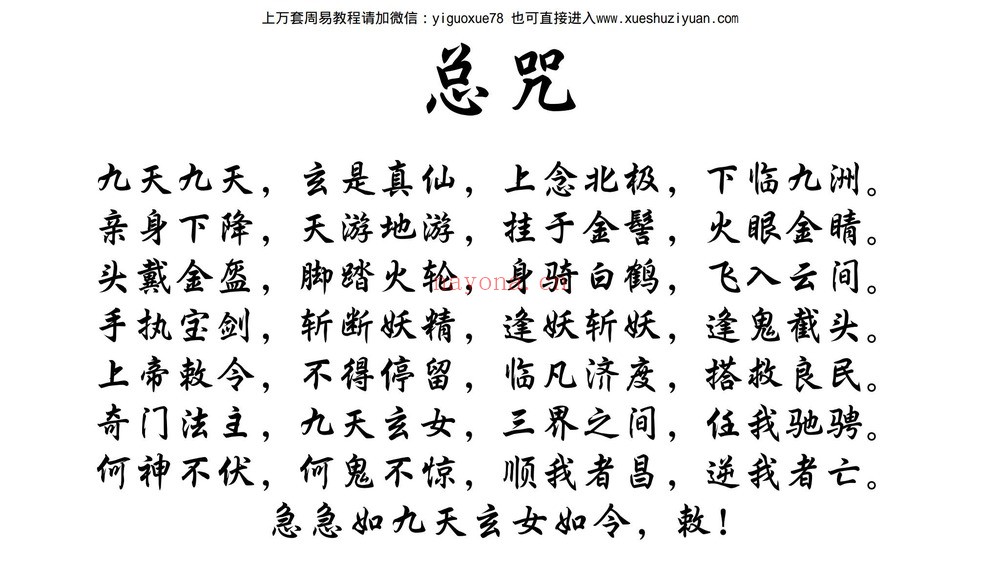 上万套周易教程请加微信：yiguoxue78 也可直接进入www.xueshuziyuan.com
总咒
九天九天，玄是真仙，上念北极，下临九洲。
亲身下降，天游地游，挂于金髻，火眼金睛。
头戴金盔，脚踏火轮，身骑白鹤，飞入云间。
手执宝剑，斩断妖精，逢妖斩妖，逢鬼截头。
上帝敕令，不得停留，临凡济度，搭救良民。
奇门法主，九天玄女，三界之间，任我驰骋。
何神不伏，何鬼不惊，顺我者昌，逆我者亡。
急急如九天玄女如令，敕！